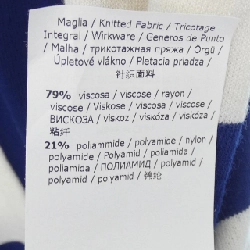 Maglia / Knitted Fabric / Tricotage
Integral / Wirkware / Generos de Punto
/ Malha / трикотажная пряжа / Örgü /
Úpletové vlákno / Pletacia priadza /
针织面料
79% viscosa / viscose / rayon /
viscose / Viskose / viscosa / viscose /
ВИСКОЗА / viskoz / viskóza / viskóza /
粘纤
21% poliammide / polyamide / nylon /
polyamide / Polyamid / poliamida /
poliamida / ПОЛИАМИД / polyamid /
polyamid / polyamid / 锦纶